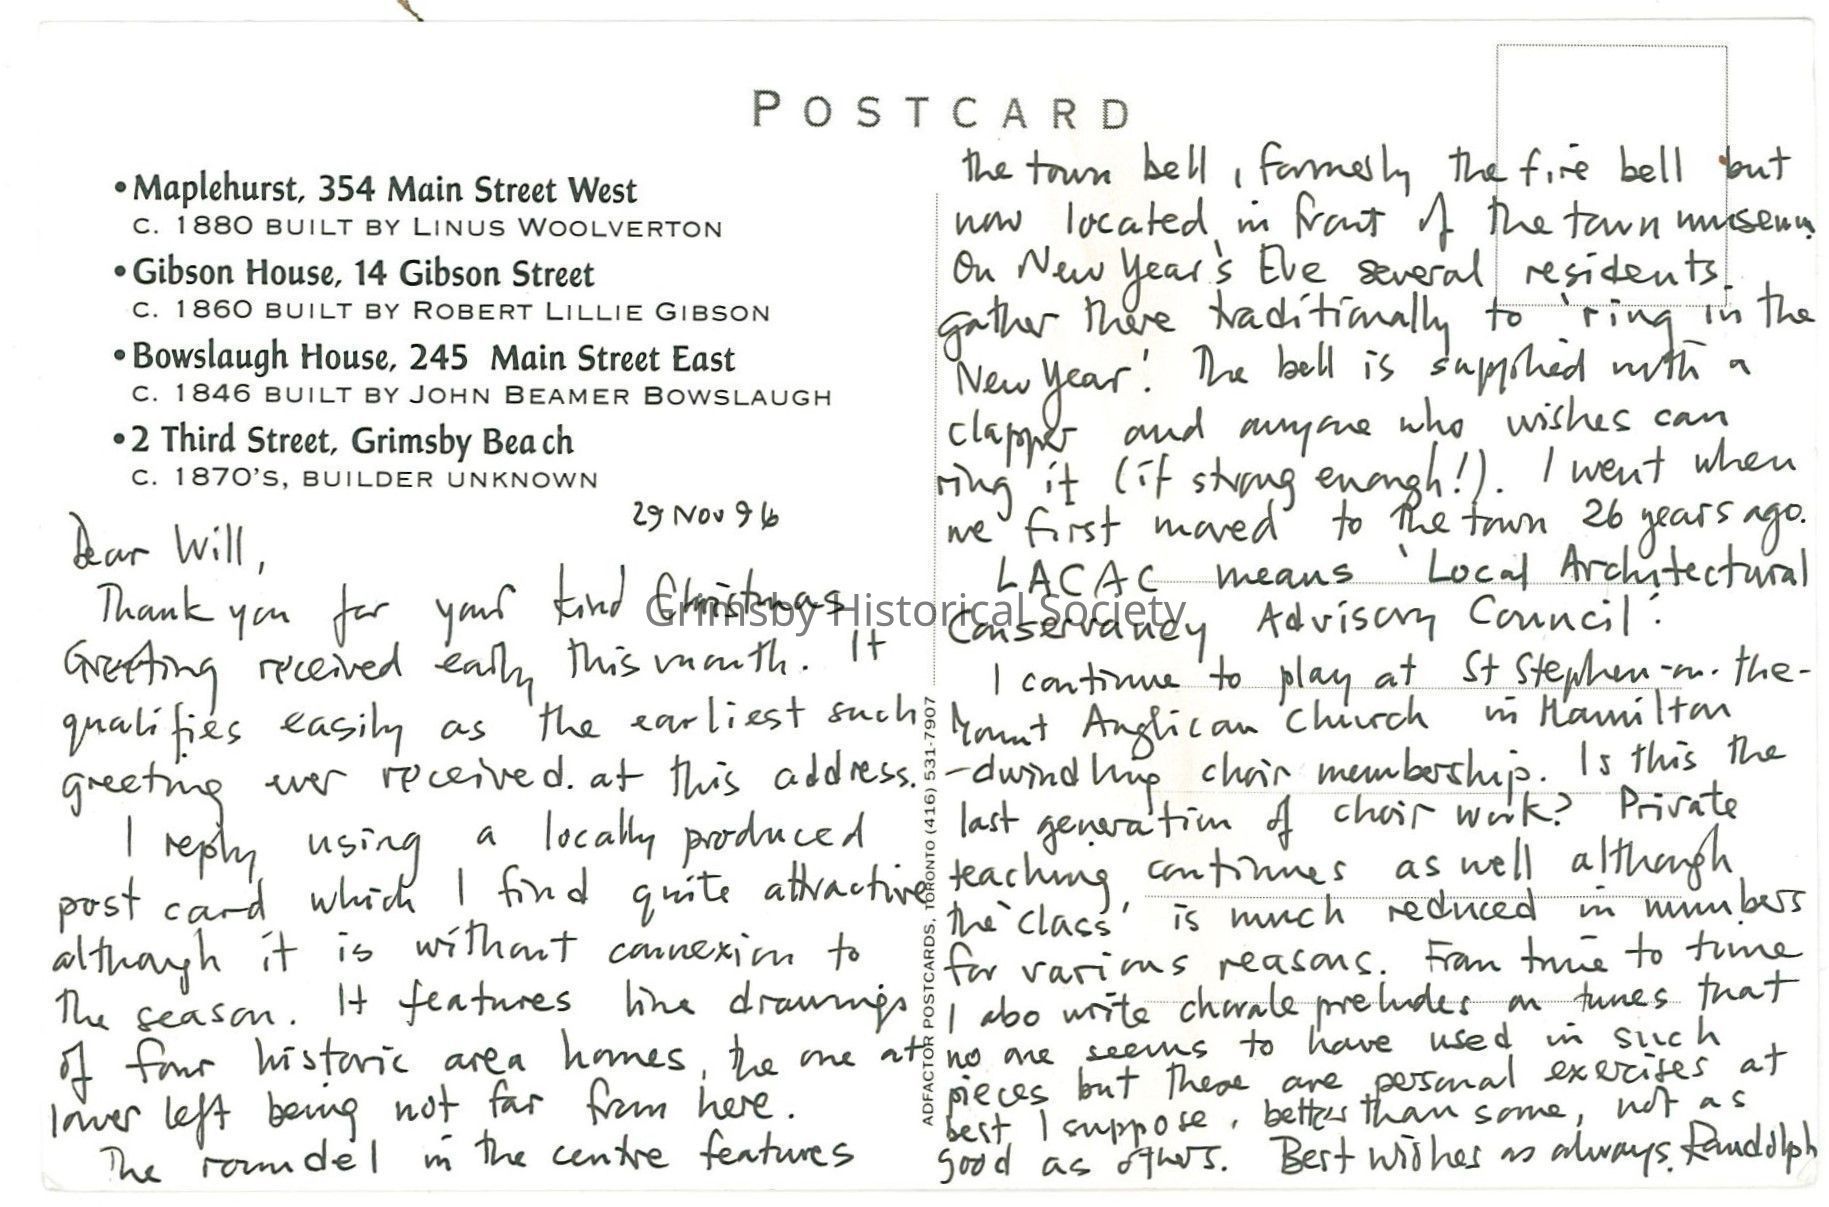 POSTCARD
• Maplehurst, 354 Main Street West
C. 1880 BUILT BY LINUS WOOLVERTON
• Gibson House, 14 Gibson Street
C. 1860 BUILT BY ROBERT LILLIE GIBSON
• Bowslaugh House, 245 Main Street East
C. 1846 BUILT BY JOHN BEAMER BOWSLAUGH
• 2 Third Street, Grimsby Beach
C. 1870'S, BUILDER UNKNOWN
29 Nov 96
Dear Will,
Thank you for your kind Christmas
Greeting received early this month. It
qualifies easily as the earliest such
greeting ever received. at this address.
I reply using a locally produced
post card which I find quite attractive
although it is without connexion to
the season. It features line drawings
of four historic area homes, the one at
lower left being not far from here.
The roundel in the centre features
the town bell, formerly the fire bell but
now located in front of the town museum.
On New Year's Eve several residents
gather there traditionally to 'ring in the
New Year'. The bell is supplied with a
clapper and anyone who wishes can
ring it (if strong enough!). I went when
we first moved to the town 26 years ago.
LACAC means 'Local Architectural
Conservancy Advisory Council'.
I continue to play at St Stephen-on-the-
Mount Anglican Church in Hamilton
-dwindling choir membership. Is this the
last generation of choir work? Private
teaching continues as well although
the 'class' is much reduced in numbers
for various reasons. From time to time
I also write chorale preludes on tunes that
no one seems to have used in such
pieces but these are personal exercises at
best, I suppose, better than some, not as
good as others. Best wishes as always, Randolph
ADFACTOR POSTCARDS, TORONTO (416) 531-7907
Grimsby Historical Society